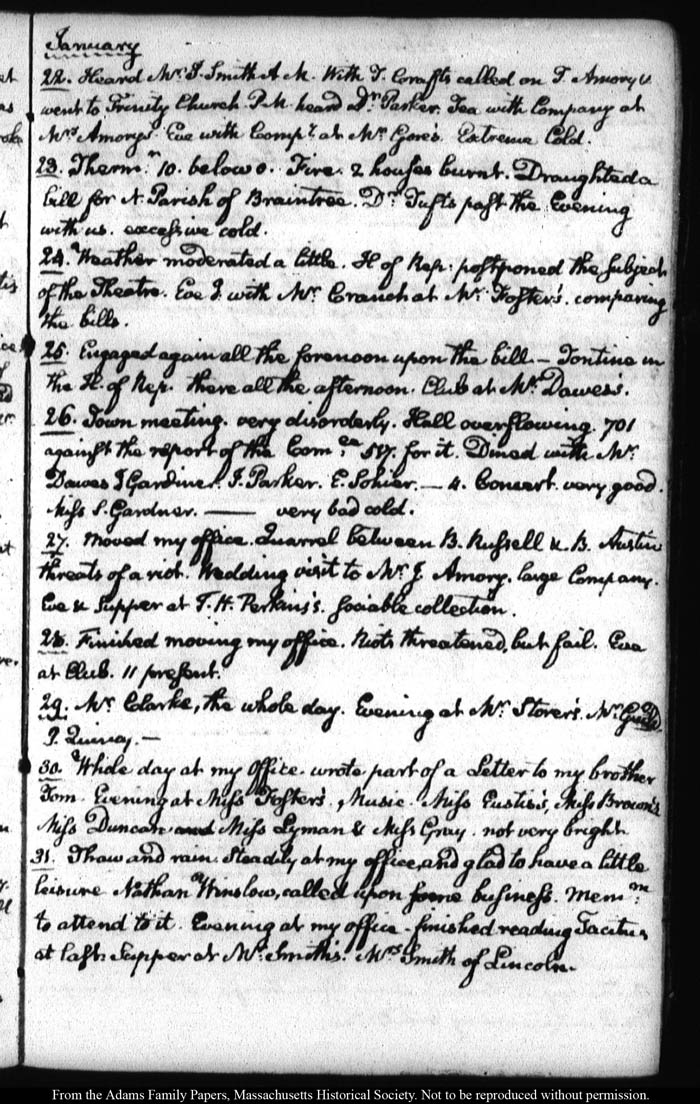 January
22. Heard Mr. I. Smith A.M. With T. Crafts called on T. Amory &
went to Trinity Church P.M. heard Dr. Parker. Tea with Company at
Mrs. Amory's. Eve with Compy. at Mr. Gore's. Extreme Cold.
23. Therm.m 10. below 0. Fire. 2 houses burnt. Draughted a
bill for N. Parish of Braintree. Dr. Tufts past the Evening
with us. excessive cold.
24. Weather moderated a little. H of Rep: postponed the subject
of the Theatre. Eve I. with Mr. Cranch at Mr. Foster's. comparing
the bills.
25. Engaged again all the forenoon upon the bill. — Tontine in
the H. of Rep. there all the afternoon. Club at Mr. Dawes's.
26. Town meeting. very disorderly. Hall overflowing. 701
against the report of the Com.ee 517. for it. Dined with Mr.
Dawes J Gardiner. I. Parker. E. Sohier. — 4. Concert. very good.
Miss S. Gardner. —— very bad cold.
27. Moved my office. Quarrel between B. Russell & B. Austin
threats of a riot. Wedding visit to Mr. J. Amory. large Company.
Eve & Supper at T. H. Perkins's. sociable collection.
28. Finished moving my office. Riots threatened, but fail. Eve
at Club. 11 present.
29. Mr. Clarke, the whole day. Evening at Mr. Storer's. Mr.
J. Quincy. —
30. Whole day at my office. wrote part of a Letter to my brother
Tom. Evening at Miss Foster's. Music. Miss Eustis's, Miss Brown's
Miss Duncan and Miss Lyman & Miss Gray. not very bright.
31. Thaw and rain. Steadily at my office, and glad to have a little
leisure. Nathan Winslow, called upon some business. Mem.m
to attend to it. Evening at my office. finished reading Tacitus
at last. Supper at Mr. Smith's. Mrs. Smith of Lincoln.
From the Adams Family Papers, Massachusetts Historical Society. Not to be reproduced without permission.